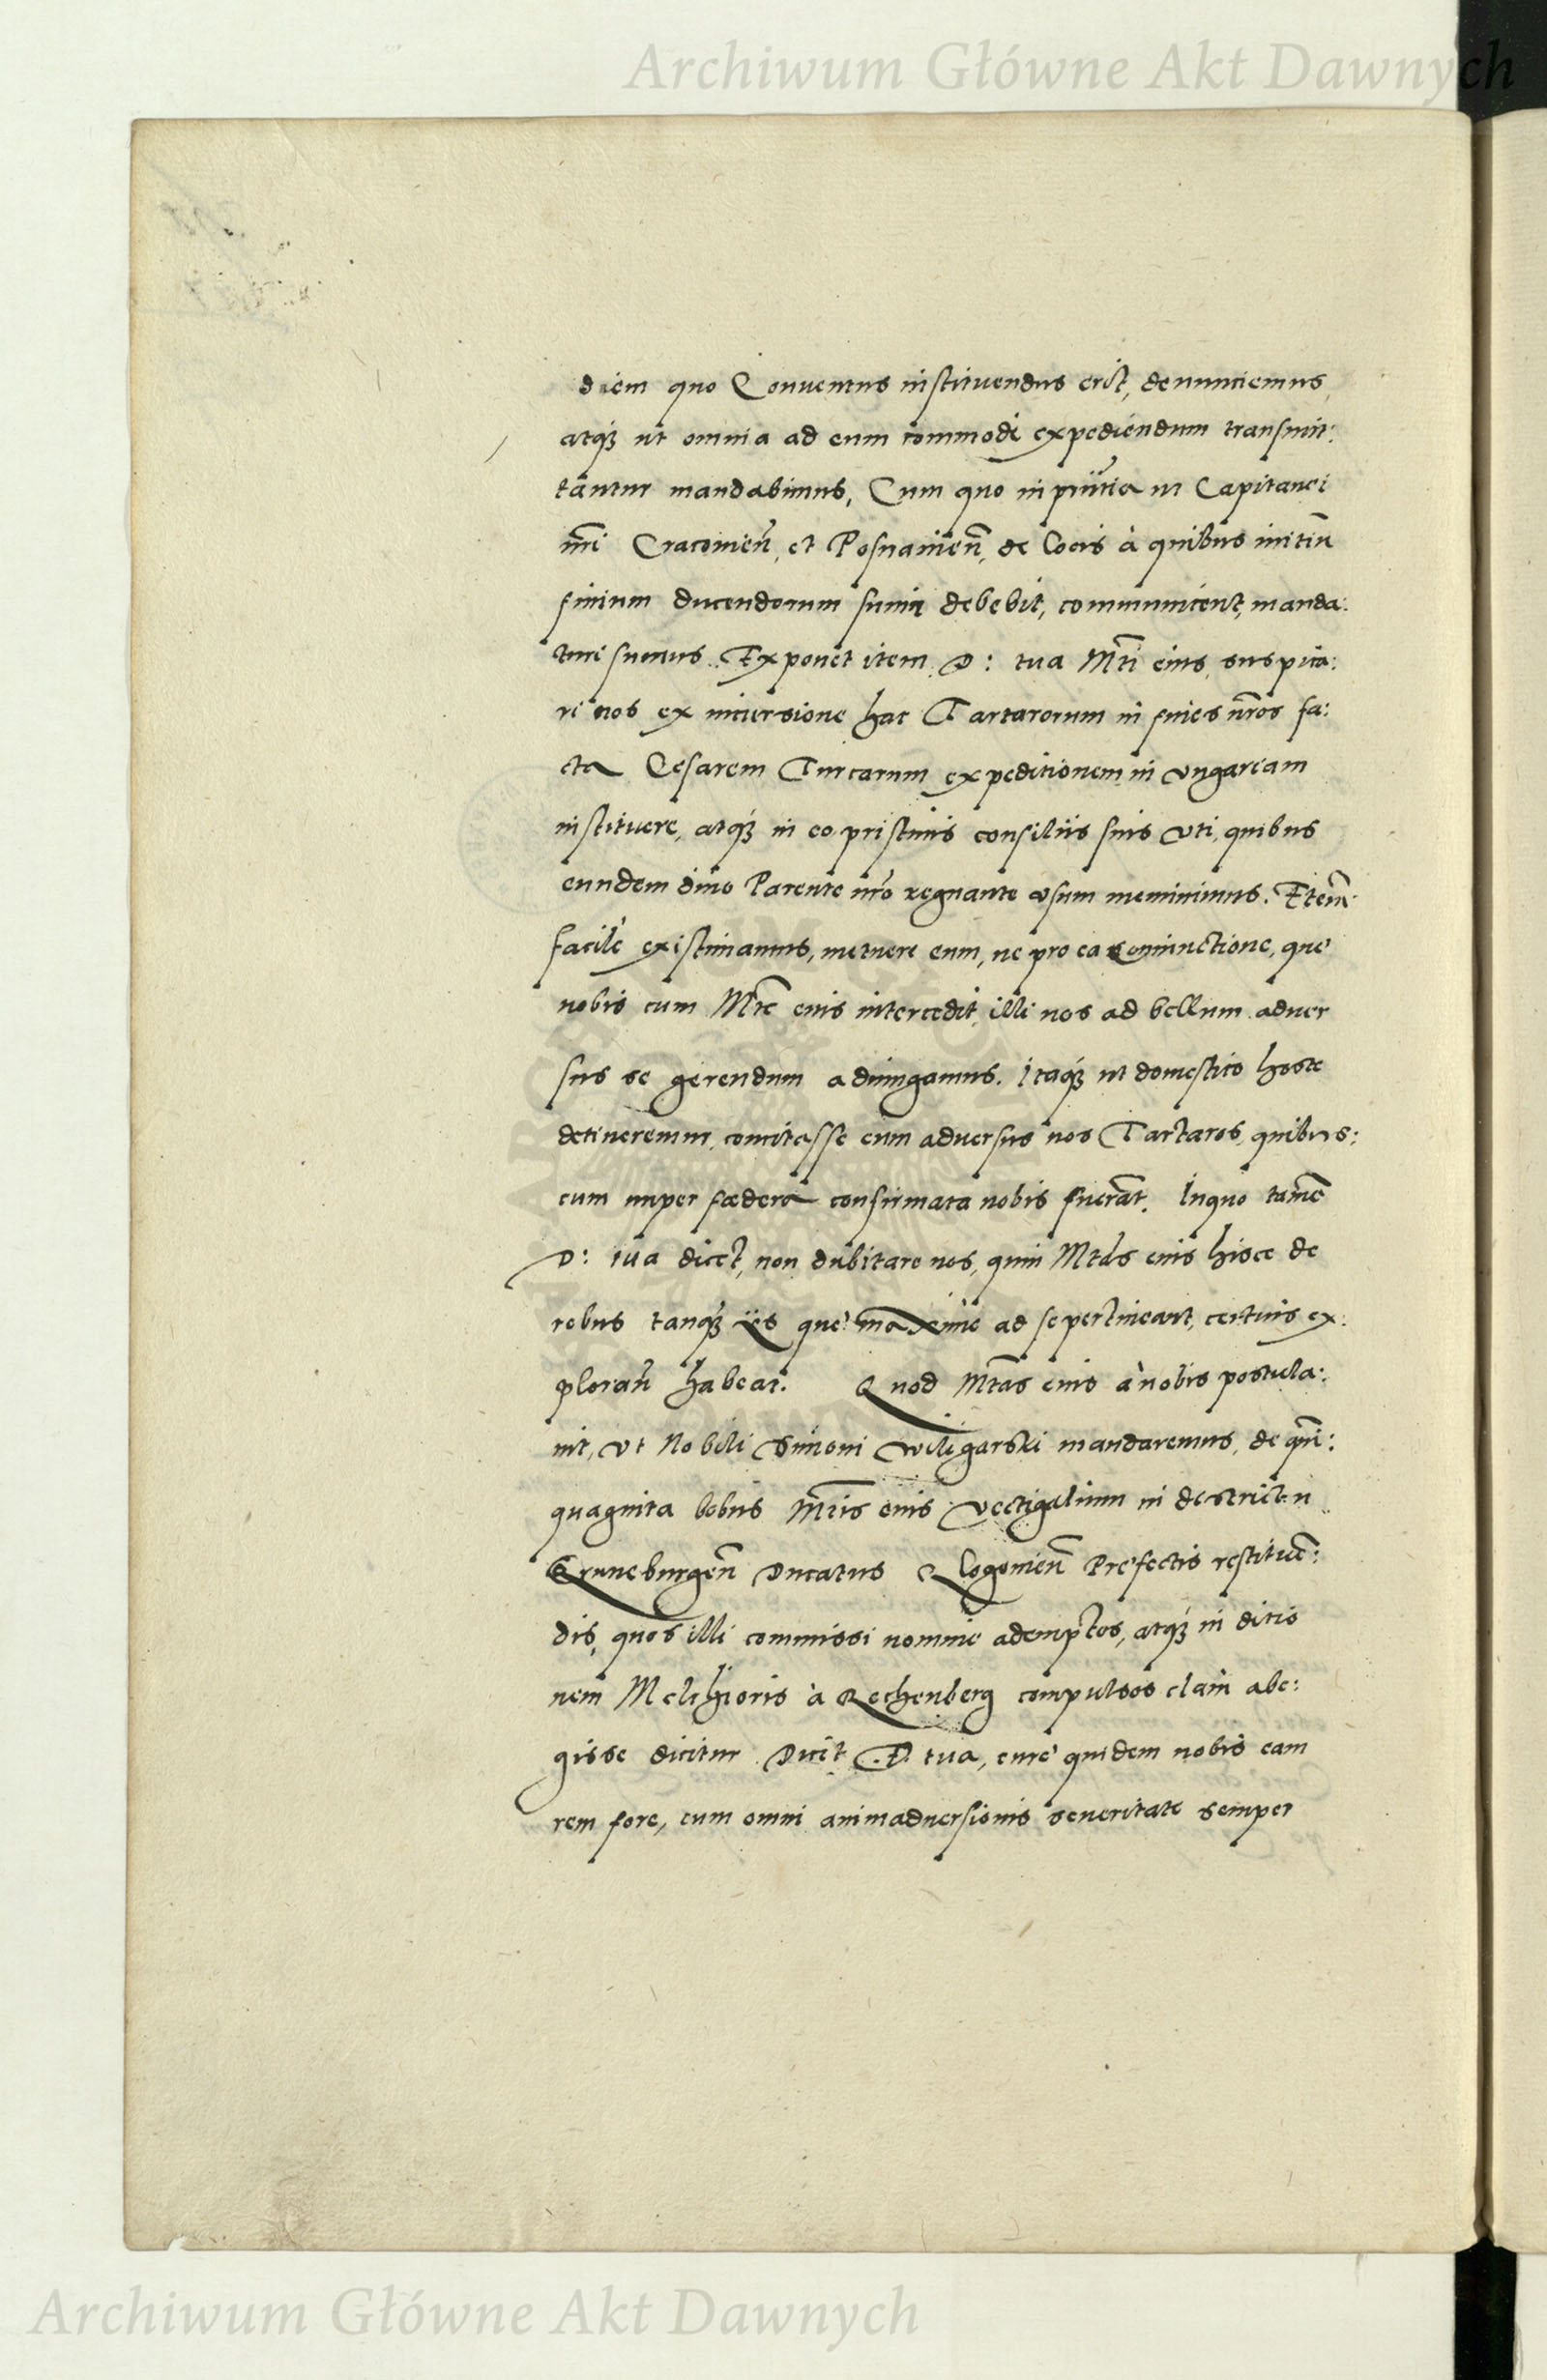 Archiwum Główne Akt Dawnych
diem quo Conuentus instituendus erit, denunciemus,
atq́3 ut omnia ad eum commodè expediendum transmit:
tantur mandabimus, Cum quo in primis ut Capitanei
nr̃i Cracouieñ, et Posnanieñ, de locis à quibus initiũ
finium ducendorum sumi debebit, communicent, manda:
turi sumus. Exponet item D: tua Mti eius, suspica:
ri nos ex incursione hac Tartarorum in fines nr̃os fa:
cta Cesarem Turcarum expeditionem in Vngariam
instituere, atq́3 in eo pristinis consiliis suis vti, quibus
eundem diuo Parente nr̃o regnante vsum meminimus. Etem̃
facile existimamus, metuere eum, ne pro ea coniunctione, que
nobis cum Mte eius intercedit, illi nos ad bellum aduer
sus se gerendum adiungamus. Itaq́3 ut domestico hoste
detineremur, concitasse eum aduersus nos Tartaros, quibus:
cum nuper fœdera confirmata nobis fuerãt. In quo tamẽ
D: tua dicet, non dubitare nos, quin Mtas eius hisce de
rebus tanq́3 iis que maxime ad se pertineant, certius ex:
plorañ habeat. Quod Mtas eius à nobis postula:
uit, vt Nobili Simoni Wiligarski mandaremus, de qui̅:
quaginta bobus Mtis eius vectigalium in destrictu
Gruneburgeñ Ducatus Glogouieñ Prefectis restitue̅:
dis, quos illi commissi nomine ademptos, atq́3 in ditio
nem Melchioris à Rechenberg compulsos clam abe:
gisse dicitur. Dicet D. tua, cure quidem nobis eam
rem fore, cum omni animaduersionis seueritate semper
Archiwum Główne Akt Dawnych